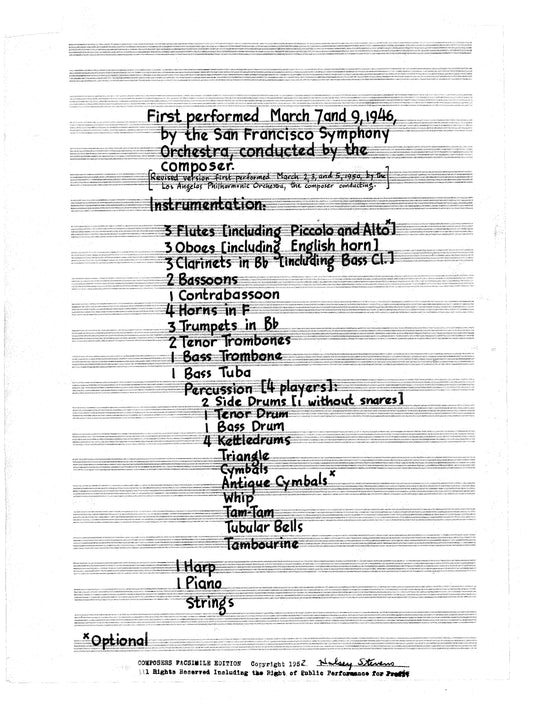 First performed March 7 and 9, 1946,
by the San Francisco Symphony
Orchestra, conducted by the
composer.
[Revised version first performed March 2, 3, and 5, 1950, by the
Los Angeles Philharmonic Orchestra, the composer conducting.]
Instrumentation:
3 Flutes [including Piccolo and Alto*]
3 Oboes [including English horn]
3 Clarinets in Bb [including Bass Cl.]
2 Bassoons
1 Contrabassoon
4 Horns in F
3 Trumpets in Bb
2 Tenor Trombones
1 Bass Trombone
1 Bass Tuba
Percussion [4 players]:
2 Side Drums [1 without snares]
1 Tenor Drum
1 Bass Drum
4 Kettledrums
Triangle
Cymbals
Antique Cymbals*
Whip
Tam-Tam
Tubular Bells
Tambourine
1 Harp
1 Piano
Strings
*Optional
COMPOSERS FACSIMILE EDITION Copyright 1952 Halsey Stevens
All Rights Reserved Including the Right of Public Performance for Profit